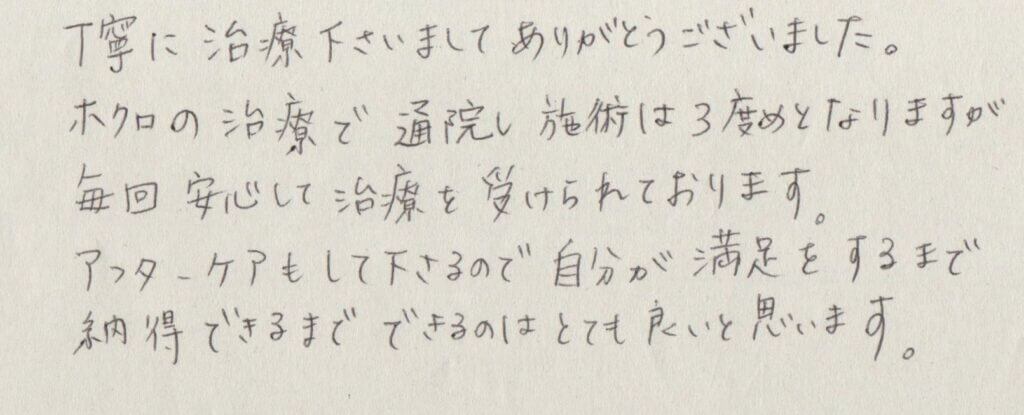 丁寧に治療下さいましてありがとうございました。
ホクロの治療で通院し施術は3度めとなりますが
毎回安心して治療を受けられております。
アフターケアもして下さるので自分が満足をするまで
納得できるまでできるのはとても良いと思います。